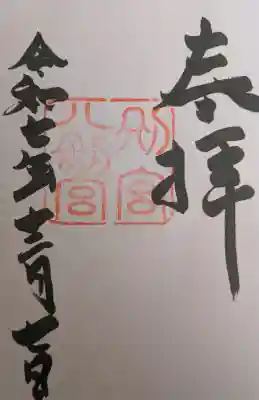 奉拝
別宮
八幡宮
令和七年十二月七日